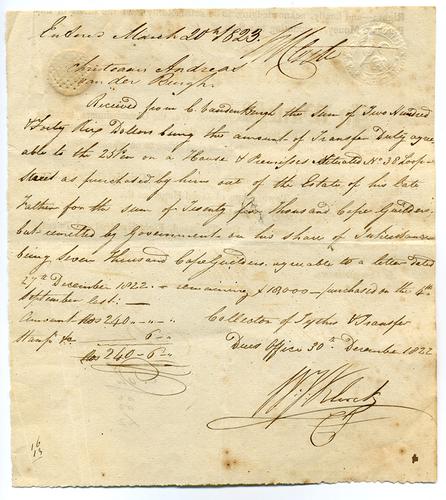 Entered March 20th 1823.
Christiaan Andreas
van der Bergh.
Received from C. Vandenbergh the sum of Two Hundred
& Forty Rix Dollars being the amount of Transfer Duty agree
able to the 23 on a House & Premises situated No 38
Street as purchased by him out of the Estate of his Late
Father for the sum of Twenty five Thousand Cape Guilders,
but remitted by Government on his share of Inheritance
being Seven Thousand Cape Guilders, agreeable to a letter dated
27th December 1822. – remaining ƒ18000 – purchased on the 4th
September last: –
Amount Rds 240 „ – „ –
Stamps &c 6 „
Rds 240 – 6 „
Collector of Tythes & Transfer
Dues Office 30th December 1822
16
13